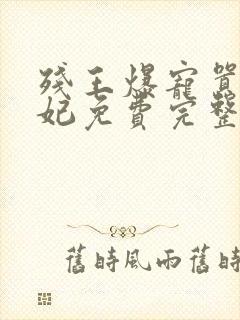 残王爆宠嚣
妃免费完整
舊時風雨舊時